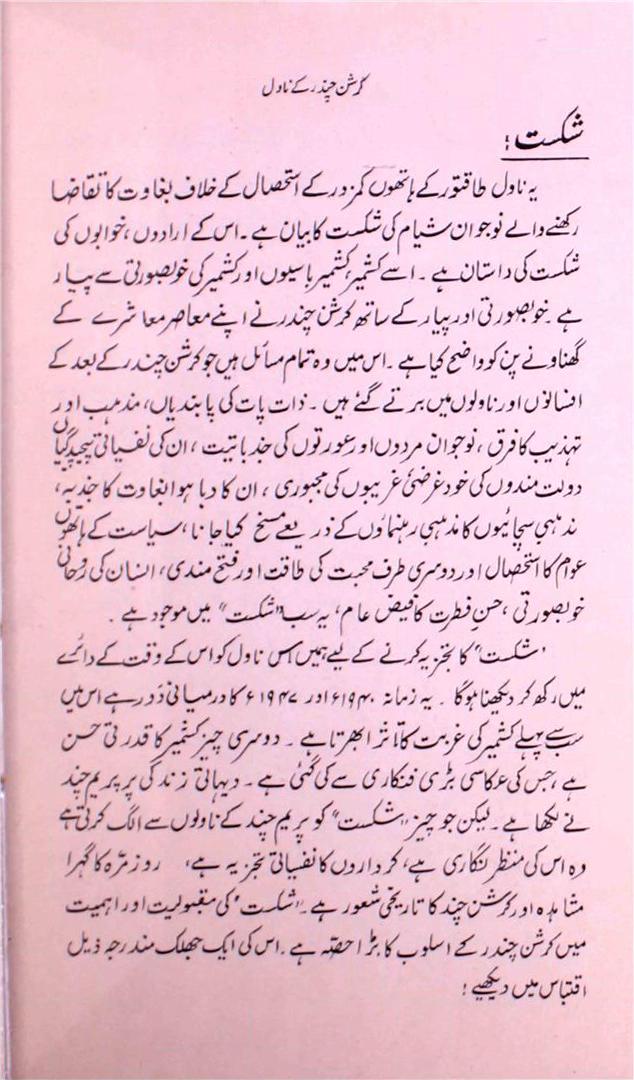 کرشن چندر کے ناول
شکست :
یہ ناول طاقتور کے ہاتھوں کمزور کے استحصال کے خلاف بغاوت کا تقاضا
رکھنے والے نوجوان شیام کی شکست کا بیان ہے ۔ اس کے ارادوں ، خوابوں کی
شکست کی داستان ہے ۔ اسے کشمیر، کشمیر باسیوں اور کشمیر کی خوبصورتی سے پیار
ہے ۔ خوبصورتی اور پیار کے ساتھ کرشن چندر نے اپنے معاصر معاشرے کے
گھناونے پن کو واضح کیا ہے ۔ اس میں وہ تمام مسائل ہیں جو کرشن چندر کے بعد کے
افسانوں اور ناولوں میں برتے گئے ہیں ۔ ذات پات کی پابندیاں ، مذہب اور
تہذیب کا فرق ، نوجوان مردوں اور عورتوں کی جذباتیت ، ان کی نفسیاتی پیچیدگیاں
دولت مندوں کی خود غرضی، غریبوں کی مجبوری ، ان کا دبا ہوا بغاوت کا جذبہ ،
مذہبی سچائیوں کا مذہبی رہنماؤں کے ذریعے مسخ کیا جانا ، سیاست کے ہاتھوں
عوام کا استحصال اور دوسری طرف محبت کی طاقت اور فتح مندی ، انسان کی روحانی
خوبصورتی ، حسنِ فطرت کا فیض عام ، یہ سب "شکست" میں موجود ہے ۔
"شکست" کا تجزیہ کرنے کے لیے ہمیں اس ناول کو اس کے وقت کے دائرے
میں رکھ کر دیکھنا ہوگا ۔ یہ زمانہ ۱۹۴۰ء اور ۱۹۴۷ء کا درمیانی دَور ہے اس میں
سب سے پہلے کشمیر کی غربت کا تاثر ابھرتا ہے ۔ دوسری چیز کشمیر کا قدرتی حسن
ہے ، جس کی عکاسی بڑی فنکاری سے کی گئی ہے ۔ دیہاتی زندگی پر پریم چند
نے لکھا ہے ۔ لیکن جو چیز "شکست" کو پریم چند کے ناولوں سے الگ کرتی ہے
وہ اس کی منظر نگاری ہے ، کرداروں کا نفسیاتی تجزیہ ہے ، روزمرّہ کا گہرا
مشاہدہ اور کرشن چند کا تاریخی شعور ہے ۔ "شکست" کی مقبولیت اور اہمیت
میں کرشن چندر کے اسلوب کا بڑا حصّہ ہے ۔ اس کی ایک جھلک مندرجہ ذیل
اقتباس میں دیکھیے !